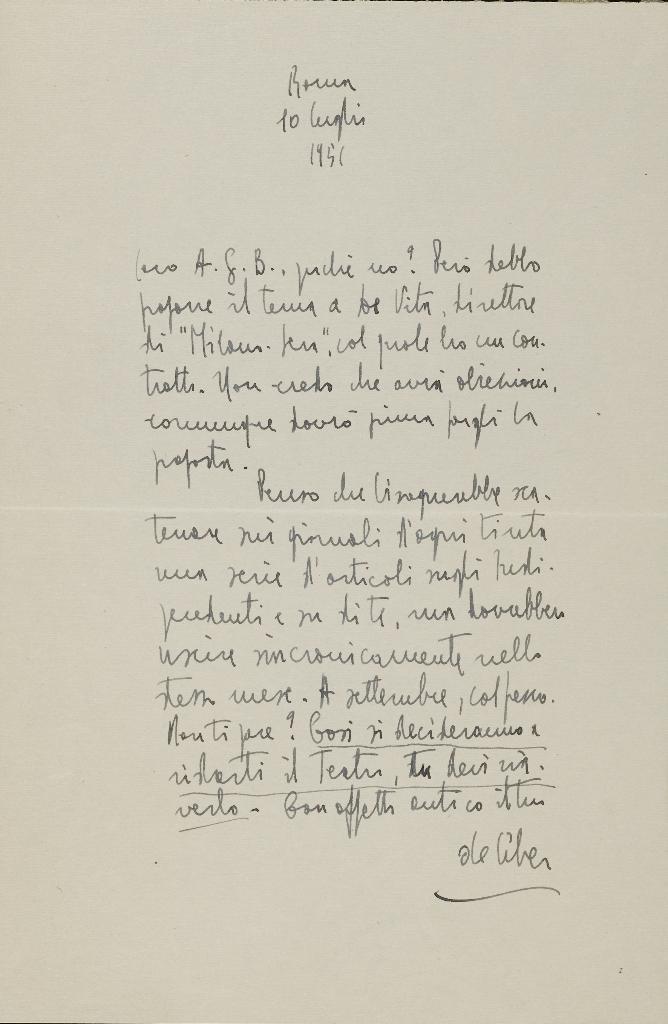 Roma
10 luglio
1951
Caro A. G. B., perché no? Però debbo
proporre il tema a De Vita, direttore
di "Milano-Sera", col quale ho un con-
tratto. Non credo che avrà obiezioni,
comunque dovrò prima fargli la
proposta.
Penso che bisognerebbe sca-
tenare sui giornali d'ogni tinta
una serie d'articoli sugli Indi-
pendenti e su di te, ma dovrebbero
uscire sincronicamente nello
stesso mese. A settembre, col fresco.
Non ti pare? Così si decideranno a
ridarti il Teatro, tu devi ria-
verlo - Con affetto antico il tuo
de Libero